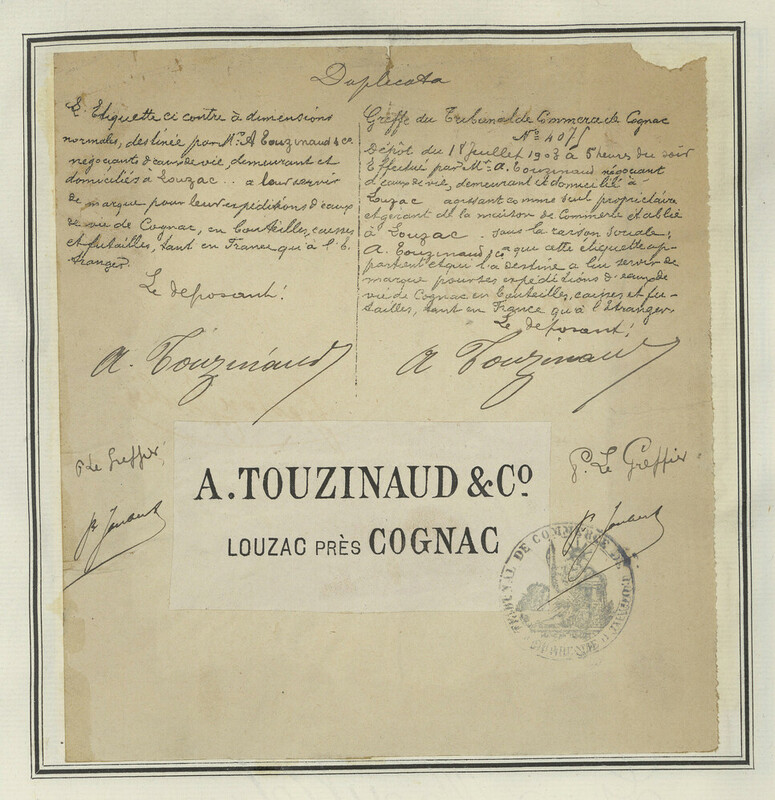 Duplicata
L'Etiquette ci contre à dimensions
normales, destinée par Mr. A Touzinaud & Co
négociants d'eaux de vie, demeurant et
domiciliés à Louzac.. a leur servir
de marque pour leurs expéditions d'eaux
de vie de Cognac, en bouteilles, caisses
et futailles, tant en France qu'à l'E-
tranger.
Le déposant:
A. Touzinaud
Greffe du Tribunal de Commerce de Cognac
No 4075
Dépôt du 18 Juillet 1903 à 5 heures du soir
Effectué par Mr. A. Touzinaud négociant
d'eaux de vie, demeurant et domicilié à
Louzac agissant comme seul propriétaire
et gérant de la maison de Commerce établie
à Louzac. sous la raison Sociale:
A. Touzinaud & Co a que cette étiquette ap-
partient et qui l'a destiné a lui servir de
marque pour ses expéditions d'eaux de
vie de Cognac en bouteilles, caisses et fu-
tailles, tant en France qu'à l'Etranger.
Le déposant:
A Touzinaud
P. Le Greffier
P. Le Greffier
A. TOUZINAUD & Co
LOUZAC PRÈS COGNAC
TRIBUNAL DE COMMERCE DE COGNAC